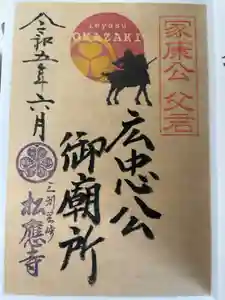 ieyasu
OKAZAKI
家康公 父君
広忠公
御廟所
令和五年六月
三州岡崎
松應寺